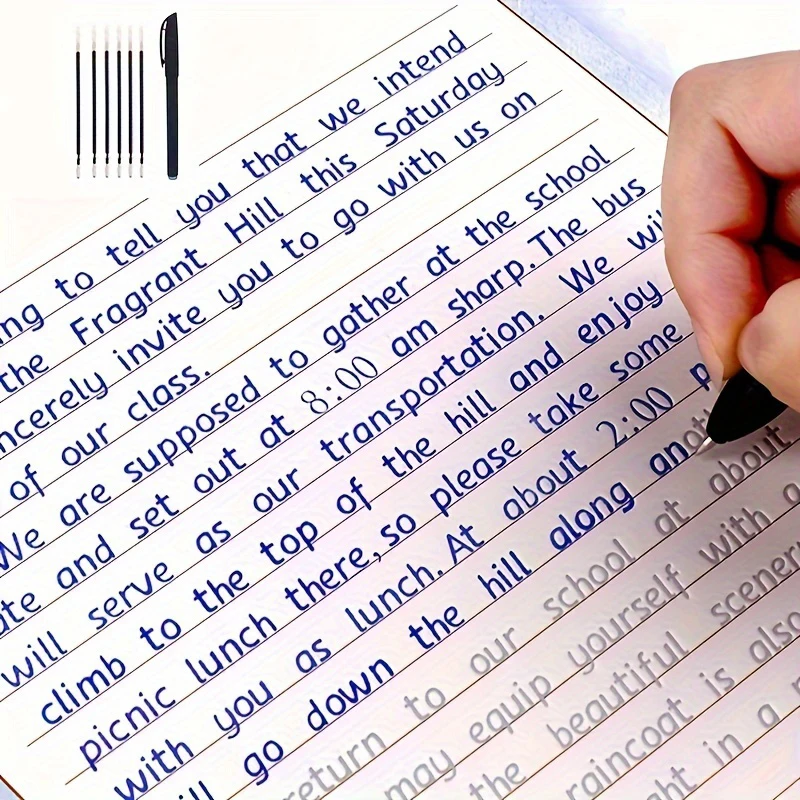 ing to tell you that we intend
the Fragrant Hill this Saturday
ncerely invite you to go with us on
of our class.
We are supposed to gather at the school
ate and set out at 8:00 am sharp. The bus
will serve as our transportation. We wil
climb to the top of the hill and enjoy
picnic lunch there, so please take some
with you as lunch. At about 2:00 p
ill go down the hill along anoth
return to our school at about
may equip yourself with a
the beautiful scener
raincoat is also
ght in a